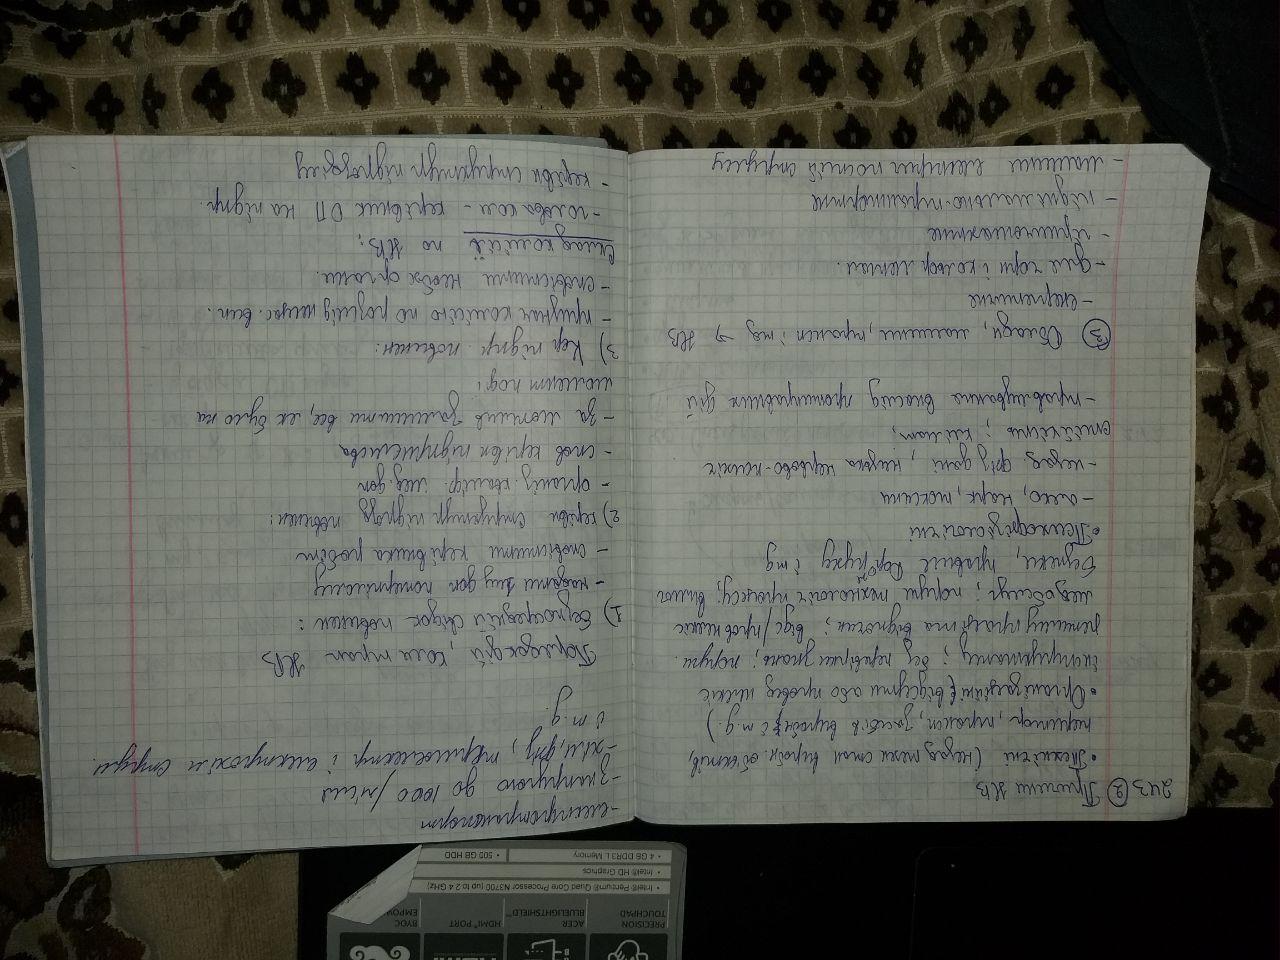 PRECISION
TOUCHPAD
ACER
BLUELIGHTSHIELD™
HDMI® PORT
BYOC
EMPOW
• Intel® Pentium® Quad Core Processor N3700 (up to 2.4 GHz)
• Intel® HD Graphics
• 4 GB DDR3 L Memory
• 500 GB HDD
243 (2) Причини НВ
• Технічні (незад техн стан виробн. об'єктів,
територ, трансп, засобів виробн і т.д.)
• Організаційні (відсутн або провед неякіс
інструктажу; без перевірки знань; поруш.
режиму праці та відпочин; відс/пров неякіс
медобслуг; поруш технологіч процесу; вимог
безпеки, правил Дор руху і тд
• Психофізіологічні
- алко, нарк, токсини
- незад. фіз дані, низька нервово-психіч
стійкість; клімат;
- травмування внаслід протиправних дій
(3) Обладн, машини, трансп і тд → НВ
- енергетичне
- для чорн і кольор метал.
- гірничошахтне
- підіймально-транспортне
- машини електрич постій струму
- електротранспорт
- з напругою до 1000 / після
- хім, фіз, термоелектр і електрохім струм.
і т.д.
Порядок дій, коли трап НВ
1) безпосередній свідок повинен:
- надати 1шу доп потерпілому
- сповістити керівника робіт
2) керівн структур підрозд повинен:
- організ. кваліф. мед. доп
- спов керівн підприємсва
- за можлив залишити все, як було на
момент події
3) Кер підпр. повинен:
- признач комісію по розслід нещас. вип.
- сповістити необх органи.
Склад комісії по НВ:
- голова ком - керівник ОП на підпр.
- керівн структур підрозділу